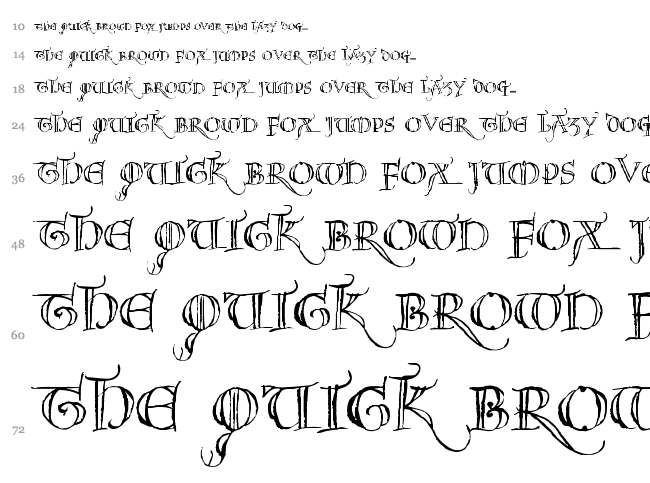 10 THE QUICK BROWN FOX JUMPS OVER THE LAZY DOG_
14 THE QUICK BROWN FOX JUMPS OVER THE LAZY DOG_
18 THE QUICK BROWN FOX JUMPS OVER THE LAZY DOG_
24 THE QUICK BROWN FOX JUMPS OVER THE LAZY DOG
36 THE QUICK BROWN FOX JUMPS OVE
48 THE QUICK BROWN FOX J
60 THE QUICK BROWN F
72 THE QUICK BROW